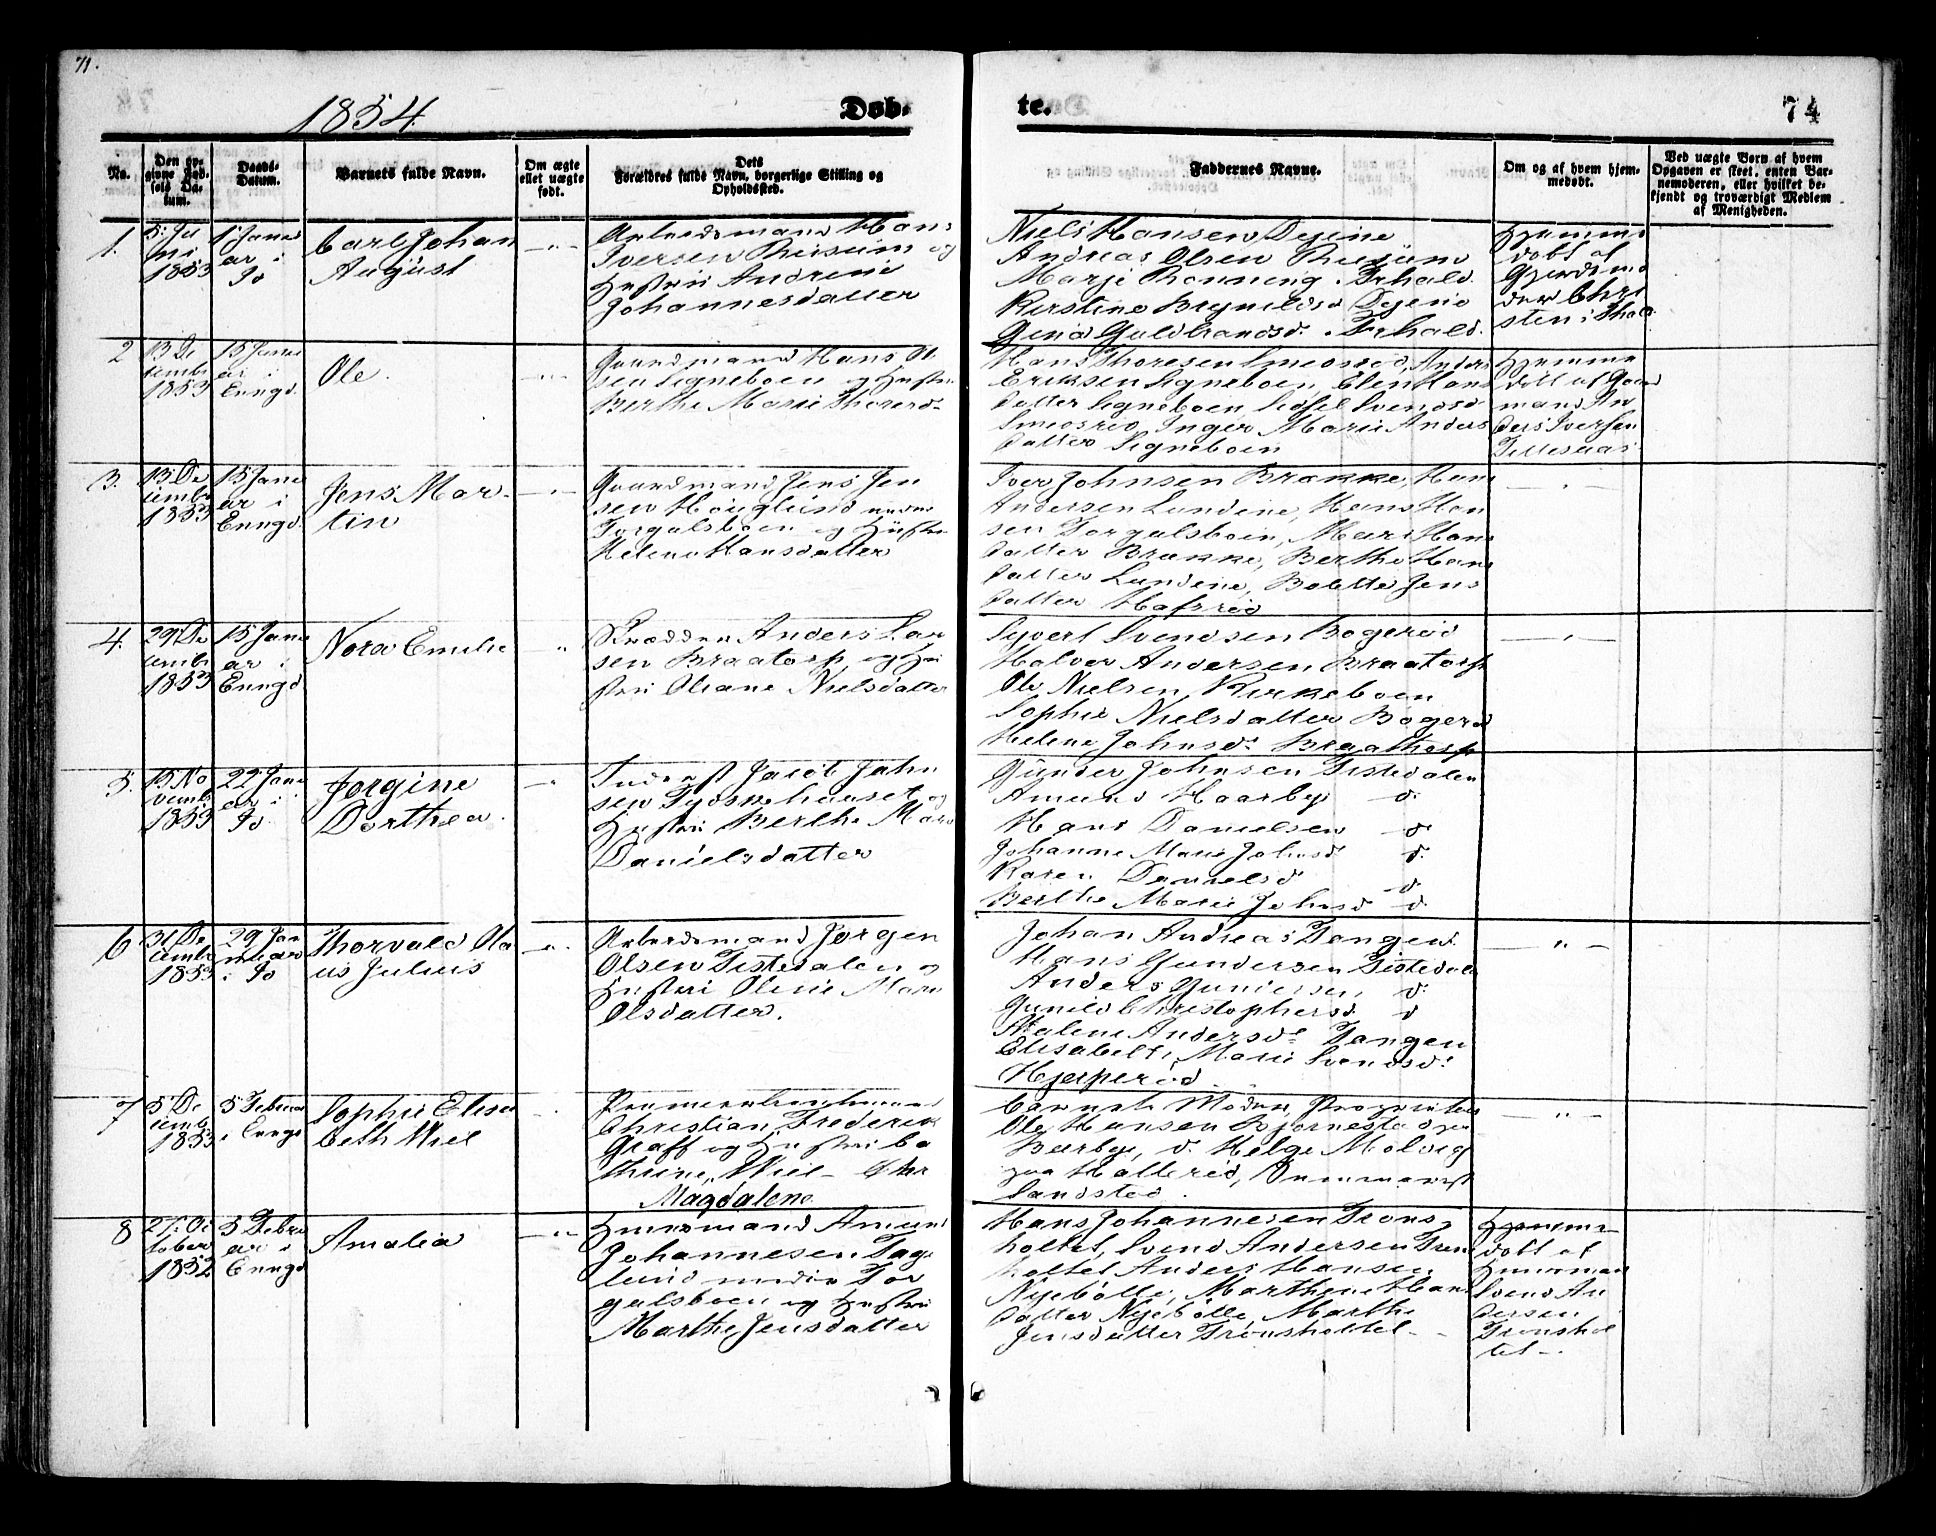 71.
1854.
Døb-
te.
74
No.
Den op-
givne Fød-
sels Da-
tum.
Daabs-
Datum.
Barnets fulde Navn.
Om ægte
eller uægte
født.
Dets
Forældres fulde Navn, borgerlige Stilling og
Opholdssted.
Faddernes Navne.
Om og af hvem hjem-
medøbt.
Ved uægte Børn af hvem
Opgaven er skeet, enten Bar-
nemoderen, eller hvilket be-
kjendt og troværdigt Medlem
af Menigheden.
1.
1853
ar i
Carl Johan
August
Arbeidsmand Hans
Iversen og
Hustru Andrine
Johannesdatter
Niels Hansen
Andreas Olsen
Marje Rønning
Kirstine
Hjemme
døbt af
sten i
2
13 De
cembr
1853
15 Janu
ar i
Enngd.
Ole.
Gaardmand Hans Ol
sen Signebøen og Hustru
Berthe Marie
Hans Thoresen Anders
Eriksen Signebøen, Elen Hans
datter Signebøen Sidsel Svendsd
Inger Marie Anders
datter Signebøen
Hjemme
døbt af Gaard
mand An
ders Iversen
3.
13 De
cembr
1853
15 Janu
ar i
Enngd.
Jens Mar-
tin
Gaardmand Jens Jen
sen Høuglund nedre
Torgalsbøen og Hustru
Helene Hansdatter
Iver Johnsen Brække, Hans
Andersen Lundene, Hans Han
sen Torgalsbøen, Mari Hans
datter Brække, Berthe Hans
datter Lundene, Bolette Jens
datter
4.
29 De
cembr
1853
15 Janu
ar i
Enngd
Nora Emilie
Skrædder Anders Lar
sen Braatorp, og Hu
stru Oliane Nielsdatter
Syvert Svendsen Bøgerød
Halvor Andersen Braatorp
Ole Nielsen Kirkebøen
Sophie Nielsdatter Bøgerød
Helene Johnsd. Braathorp
5.
13 No
vembr
1853
22 Janu
ar i
Jørgine
Dorthea.
Inderst Jacob Joha
sen og
Hustru Berthe Mari
Danielsdatter
Gunder Johnsen Tistedalen
Amund Haarby d.
Hans Danielsen d.
Johanne Marie Johnsd d.
Karen Danielsd d.
Berthe Marie Johnsd d.
6
31 De
cembr
1853
29 Jan
nuar
i
Thorvald Ola
us Julius
Arbeidsmand Jørgen
Olsen Tistedalen og
Hustru Oline Mari
Olsdatter.
Johan Andreas Tangen
Hans Gundersen Tistedalen
Anders Gundersen d.
Gunild Christophersd d
Malene Andersd. Tangen
Elisabeth Marie Svendsd.
Hjerperød
7
5 De
cembr
1853
5 Februar
i Enngd
Sophie Elisa
beth Wiel
Christian Frederik
Graff og Hustru Ca
thrine, Wiel
Magdalene
Barnets Moder, Proprietær
Ole Hansen Bjørnestad
Berby, d. Helge Molvig
paa
8
27: Oc
tober
1852
5 Febru
ar i
Enngd
Amalia
Huusmand Amund
Johannesen
lund nedre Tor
galsbøen og Hustru
Marthe Jensdatter
Hans Johannesen Trons-
holtet, Svend Andersen Trons
holtet Anders Hansen
Nyebølle, Marthe Hans
datter Nyebølle Marthe
Jensdatter Tronsholtet
Hjemme-
døbt af
Huusman
Svend An
dersen
Tronshol
tet.